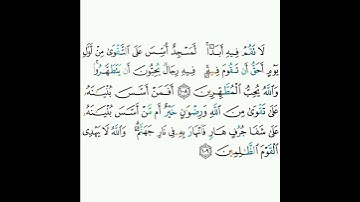 لَا تَقُمْ فِيهِ أَبَدًا ۚ لَّمَسْجِدٌ أُسِّسَ عَلَى التَّقْوَىٰ مِنْ أَوَّلِ
يَوْمٍ أَحَقُّ أَن تَقُومَ فِيهِ ۚ فِيهِ رِجَالٌ يُحِبُّونَ أَن يَتَطَهَّرُوا ۚ
وَاللَّهُ يُحِبُّ الْمُطَّهِّرِينَ ١٠٨ أَفَمَنْ أَسَّسَ بُنْيَانَهُ
عَلَىٰ تَقْوَىٰ مِنَ اللَّهِ وَرِضْوَانٍ خَيْرٌ أَم مَّنْ أَسَّسَ بُنْيَانَهُ
عَلَىٰ شَفَا جُرُفٍ هَارٍ فَانْهَارَ بِهِ فِي نَارِ جَهَنَّمَ ۗ وَاللَّهُ لَا يَهْدِي
الْقَوْمَ الظَّالِمِينَ ١٠٩